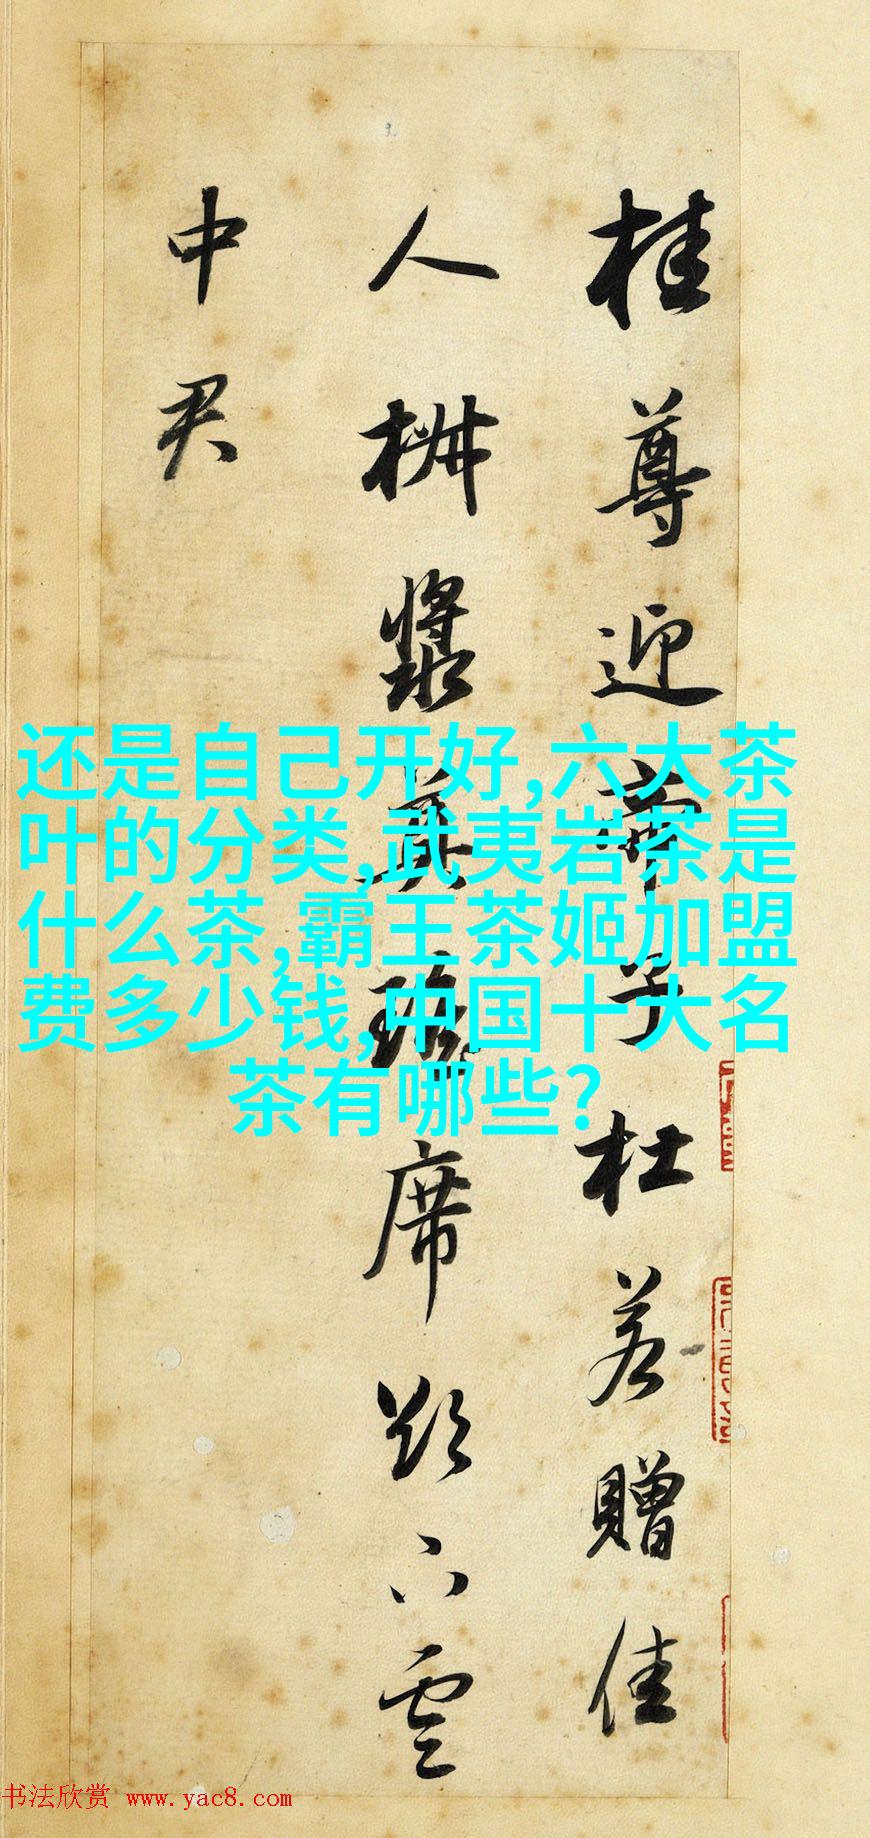 桂尊迎帝子杜若贈佳
人椒漿奠瑤席欲下雲
中君
还是自己开好,六大茶
叶的分类,武夷岩茶是
什么茶,霸王茶姬加盟
费多少钱,中国十大名
茶有哪些?
书法欣赏 www.yac8.com